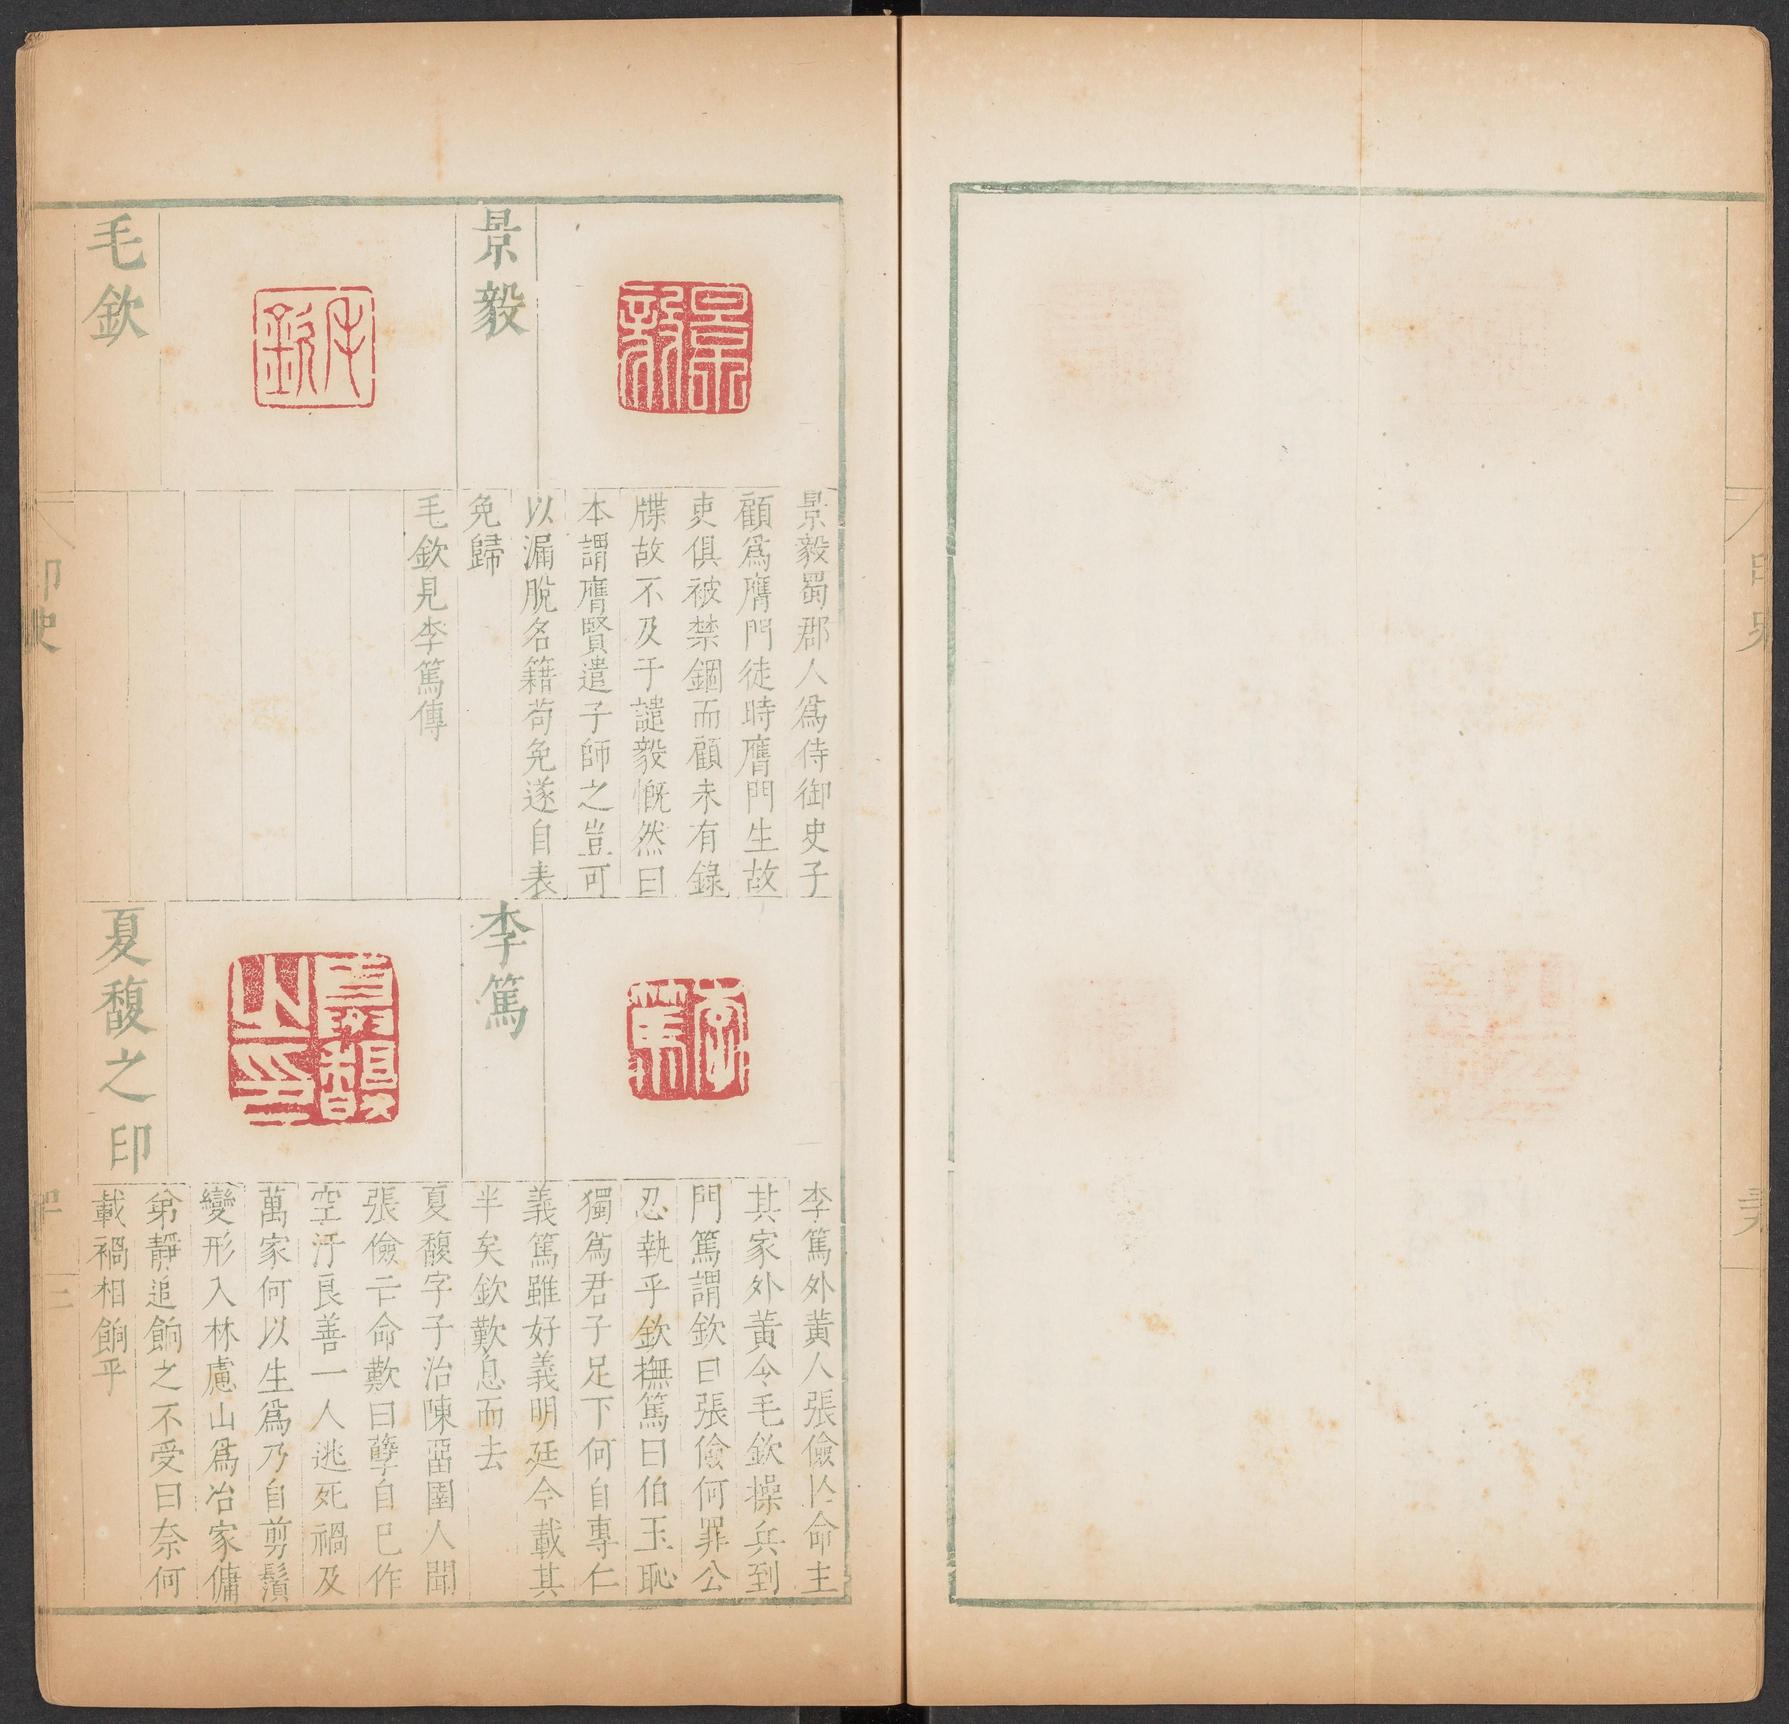 景毅
毛欽
景毅蜀郡人爲侍御史子
顧爲膺門徒時膺門生故
吏俱被禁錮而顧未有錄
牒故不及于譴毅慨然曰
本謂膺賢遣子師之豈可
以漏脫名籍苟免遂自表
免歸
毛欽見李篤傳
李篤
夏馥之印
李篤外黃人張儉亾命主
其家外黃令毛欽操兵到
門篤謂欽曰張儉何罪公
忍執乎欽撫篤曰伯玉恥
獨爲君子足下何自專仁
義篤雖好義明廷今載其
半矣欽歎息而去
夏馥字子治陳畱圉人聞
張儉亡命歎曰孽自己作
空汙良善一人逃死禍及
萬家何以生爲乃自剪鬚
變形入林慮山爲冶家傭
弟靜追餉之不受曰奈何
載禍相餉乎
印史